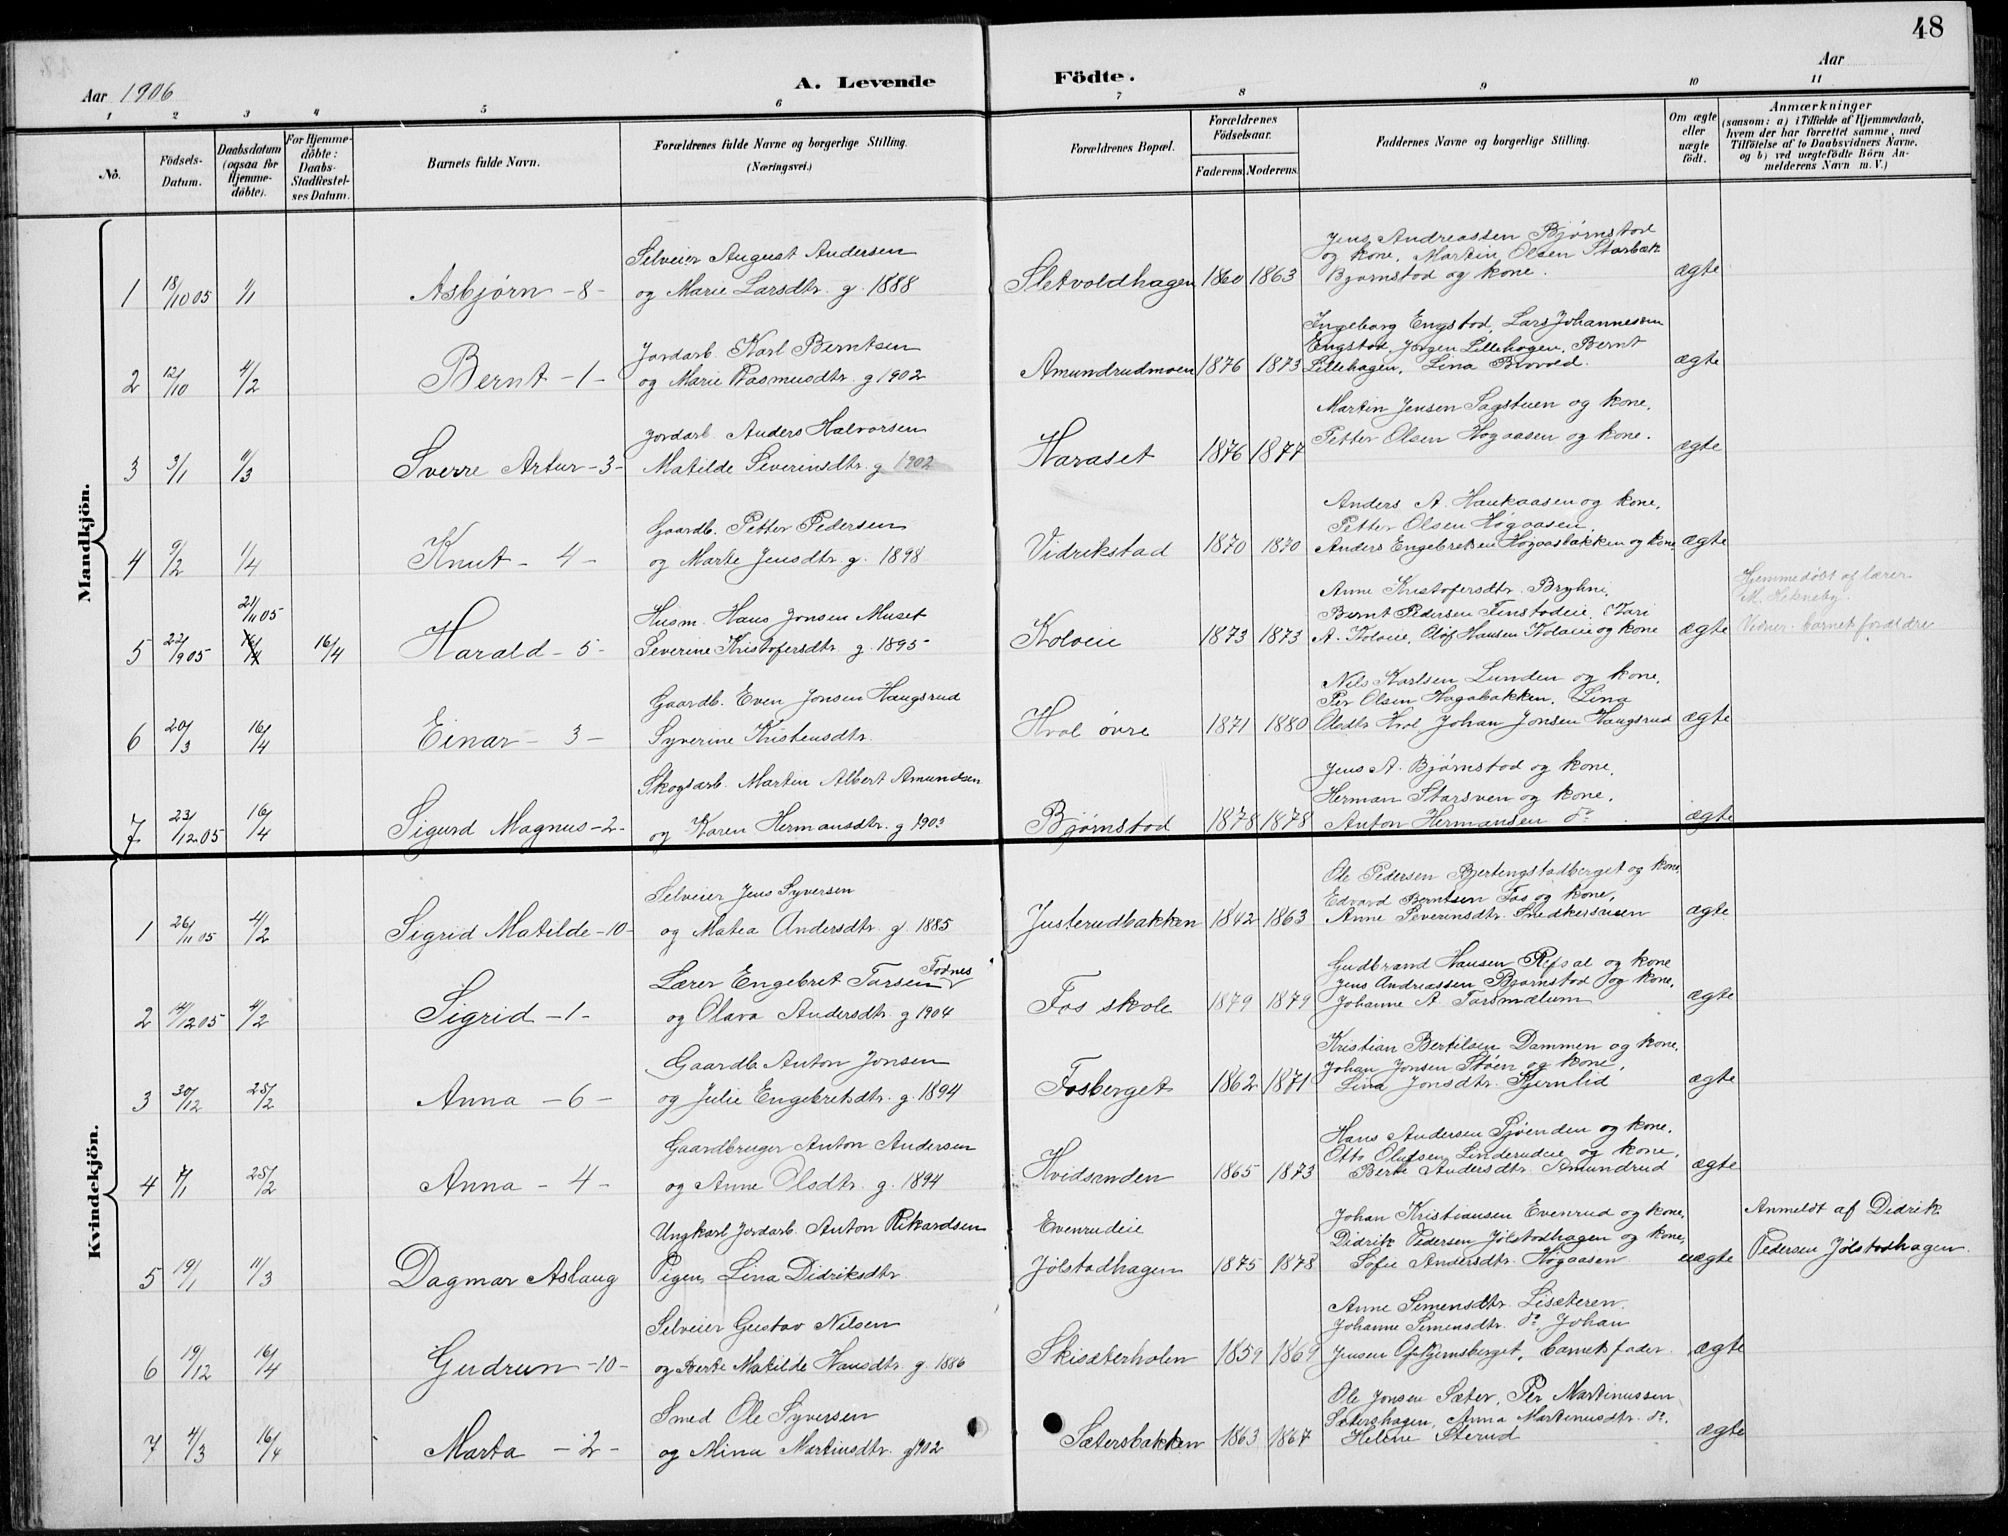 48
Aar 1906
A. Levende
Födte.
Aar
1 2 3 4 5 6 7 8 9 10 11
No.
Födsels-Datum.
Daabsdatum (ogsaa for Hjemme-döbte).
For Hjemme-döbte: Daabs-Stadfæstel-ses Datum.
Barnets fulde Navn.
Forældrenes fulde Navne og borgerlige Stilling. (Næringsvei.)
Forældrenes Bopæl.
Forældrenes Födselsaar.
Faderens. Moderens.
Faddernes Navne og borgerlige Stilling.
Om ægte eller uægte födt.
Anmærkninger
(saasom: a) i Tilfælde af Hjemmedaab,
hvem der har forrettet samme, med
Tilföielse af to Daabsvidners Navne,
og b) ved uægtefödte Börn An-
melderens Navn m. V.)
Mandkjön.
1 18/10 05 1/1 Asbjørn - 8 -
Selveier August Andersen
og Marie Larsdtr. g. 1888
Sletvoldhagen 1860 1863
Jens Andreassen Bjørnstad
og kone, Martin Olsen Starbæk
Bjørnstad og kone.
ægte
2 12/10 4/2 Bernt - 1 -
Jordarb. Karl Berntsen
og Marie Rasmusdtr. g 1902
Amundrudmoen 1876 1873
Ingeborg Engstad, Lars Johannessen
Engstad, Jørgen Lillehagen, Bernt
Lillehagen, Lina
ægte
3 3/1 11/3 Sverre Artur - 3 -
Jordarb. Anders Halvorsen
Matilde Severinsdtr. g 1902
Haraset 1876 1877
Martin Jensen Sagstuen og kone,
Petter Olsen Høgaasen og kone.
ægte
4 9/2 1/4 Knut - 4 -
Gaardb. Petter Pedersen
og Marte Jensdtr. g. 1898
Vidrikstad 1870 1870
Anders A. Haukaasen og kone,
Petter Olsen Høgaasen,
Anders Engebretsen Høgaasbakken og kone
ægte
5 22/9 05 21/11 05 16/4 16/4 Harald - 5 -
Husm. Hans Jonsen Muset
Severine Kristofersdtr. g. 1895
Kolveie 1873 1873
Anne Kristofersdtr. Bryhni,
Bernt Pedersen Finstadeie, Kari
A. Kolaeie, Olof Hansen Kolaeie og kone
ægte
Hjemmedøbt af lærer
M.
Vidner: barnets forældre
6 20/3 16/4 Einar - 3 -
Gaardb. Even Jonsen Haugsrud
Syverine Kristensdtr.
Hvol øvre 1871 1880
Nils Karlsen Lunden og kone,
Per Olsen Hagabakken, Lina
Olsdtr Hvol Johan Jonsen Haugsrud
ægte
7 23/12 05 16/4 Sigurd Magnus - 2 -
Skogsarb. Martin Albert Amundsen
og Karen Hermansdtr. g 1903
Bjørnstad 1878 1878
Jens A. Bjørnstad og kone,
Herman Starsven og kone,
Anton Hermansen do
ægte
Kvindekjön.
1 26/11 05 4/2 Sigrid Matilde - 10 -
Selveier Jens Syversen
og Matea Andersdtr. g. 1885
Justerudbakken 1842 1863
Ole Pedersen Bjertengstadberget og kone,
Edvard Berntsen Fos og kone,
Anne Severinsdtr. Snedkersveen
ægte
2 14/12 05 4/2 Sigrid - 1 -
Lærer Engebret Tarsen Fodnes
og Olava Andersdtr. g 1904
Fos skole 1879 1879
Gudbrand Hansen Rifsal og kone
Jens Andreassen Bjørnstad og kone,
Johanne A. Tarsmælum
ægte
3 30/12 25/2 Anna - 6 -
Gaardb. Anton Jonsen
og Julie Engebretsdtr. g. 1894
Fosberget 1862 1871
Kristian Bertilsen Dammen og kone,
Johan Jonsen Støen og kone,
Lina Jonsdtr. Kjernlid
ægte
4 7/1 25/2 Anna - 4 -
Gaardbruger Anton Andersen
og Anne Olsdtr. g. 1894
Hvidsanden 1865 1873
Hans Andersen Sjøenden og kone,
Otto Olufsen Linderudeie og kone,
Berte Andersdtr. Amundrud
ægte
5 19/1 11/3 Dagmar Aslaug
Ungkarl Jordarb. Anton Rikardsen
Pigen Lina Didriksdtr.
Evenrudeie
Jølstadhagen 1875 1878
Johan Kristiansen Evenrud og kone,
Didrik Pedersen Jølstadhagen og kone,
Sofie Andersdtr. Høgaasen
uægte
Anmeldt af Didrik
Pedersen Jølstadhagen.
6 19/12 16/4 Gudrun - 10 -
Selveier Gustav Nilsen
og Berte Matilde Hansdtr. g. 1886
Skisæterholen 1859 1869
Anne Simensdtr. Lisæteren.
Johanne Simensdtr. do, Johan
Jensen Opkjernsberget, barnets fader.
ægte
7 4/3 16/4 Marta - 2 -
Smed Ole Syversen
og Mina Martinsdtr. g 1902
Sætersbakken 1863 1867
Ole Jonsen Sæter, Per Martinussen
Sætershagen, Anna Martinusdtr. do,
Helene Sterud
ægte